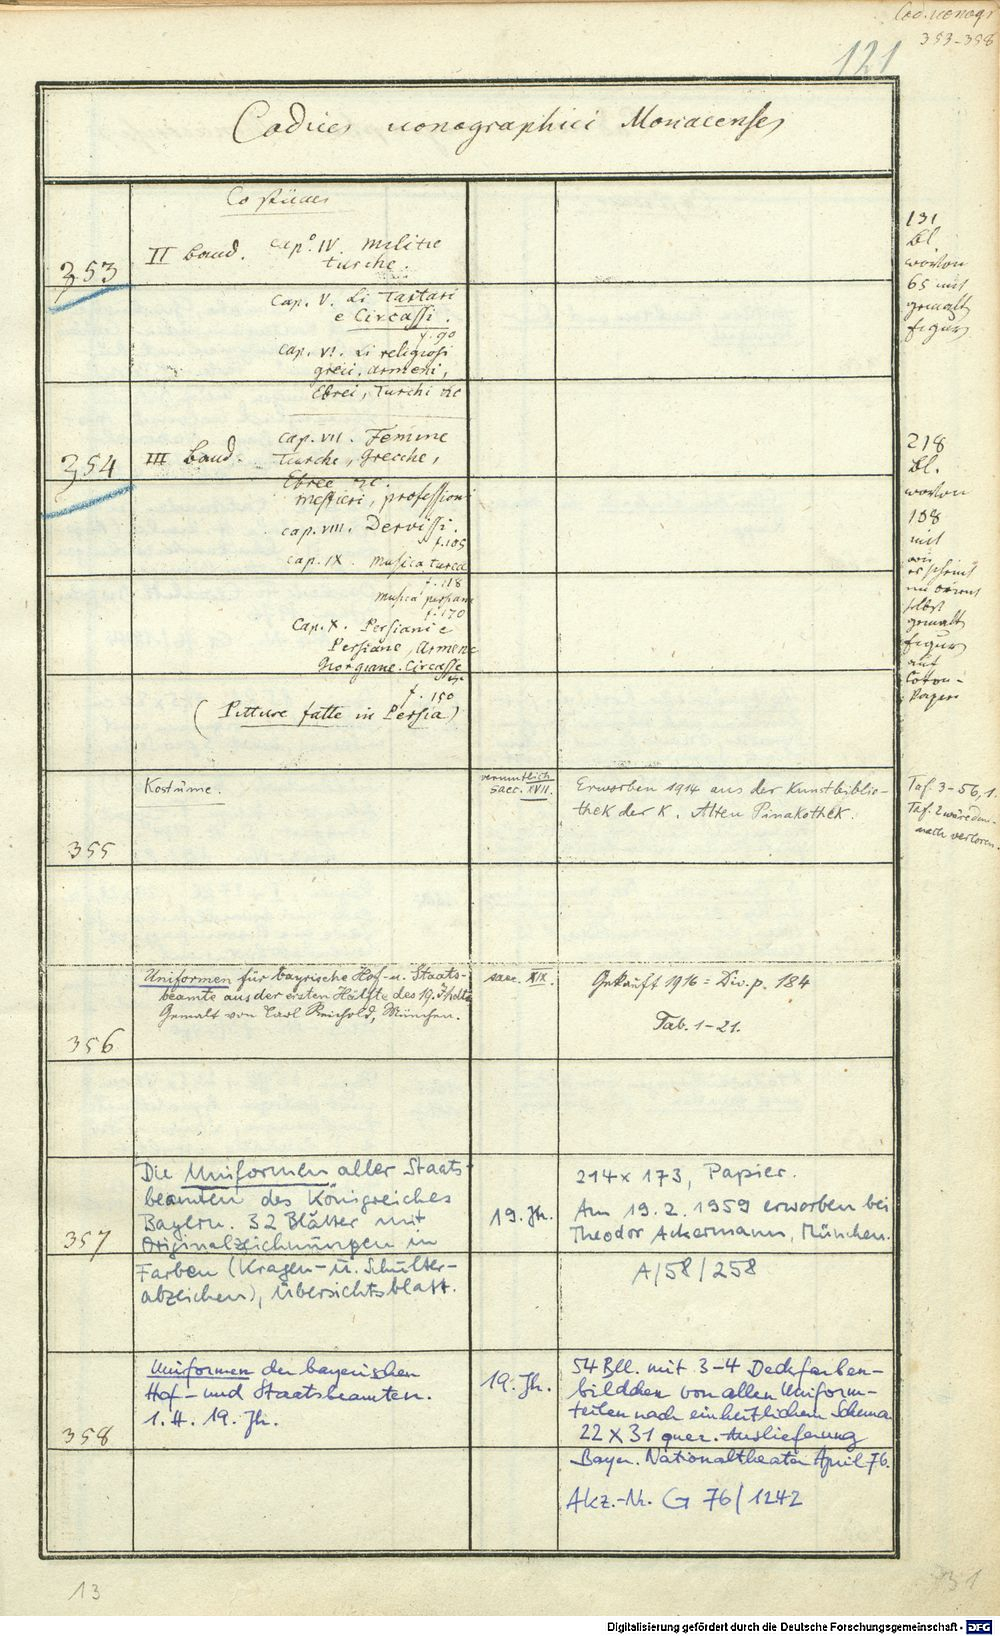 Cod. iconogr.
353-358
121
Codices iconographici Monacenses
Costüme
353
II Band. Cap.º IV. Militie
turche.
Cap. V. Li Tartari
e Circassi.
f. 90
Cap. VI. Li religiosi
greci, armeni,
Ebrei, Turchi &c
131
Bl.
wovon
65 mit
gemalt.
Figur.
354
III Band. Cap. VII. Femine
Turche, Greche,
Ebree &c.
mestieri, professioni
Cap. VIII. Dervissi.
f. 105
Cap. IX. Musica turca
f. 118
Musica persiana
f. 170
Cap. X. Persiani e
Persiane, Armene
Giorgiane. Circasse
f. 150
(Pitture fatte in Persia)
218
Bl.
wovon
108
mit
wie
es scheint
im Orient
selbst
gemalt.
Figur.
auf
Cotton-
Papier
355
Kostüme.
vermutlich
saec. XVII.
Erworben 1914 aus der Kunstbiblio-
thek der K. Alten Pinakothek.
Taf. 3-56, 1.
Taf. 2 wäre dem-
nach verloren.
356
Uniformen für bayrische Hof- u. Staats-
beamte aus der ersten Hälfte des 19. Jhdts
Gemalt von Carl Reichold, München.
saec. XIX.
Gekauft 1916 = Div. p. 184
Tab. 1-21.
357
Die Uniformen aller Staats-
beamten des Königreiches
Bayern. 32 Blätter mit
Originalzeichnungen in
Farben (Kragen- u. Schulter-
abzeichen), Übersichtsblatt.
19. Jh.
214 x 173, Papier.
Am 19. 2. 1959 erworben bei
Theodor Ackermann, München.
A/58/258
358
Uniformen der bayerischen
Hof- und Staatsbeamten.
1. H. 19. Jh.
19. Jh.
54 Bll. mit 3-4 Deckfarben-
bildchen von allen Uniform-
teilen nach einheitlichem Schema
22 x 31 quer. Auslieferung
Bayer. Nationaltheater April 76.
Akz.-Nr. G 76/1242
13
Digitalisierung gefördert durch die Deutsche Forschungsgemeinschaft - DFG